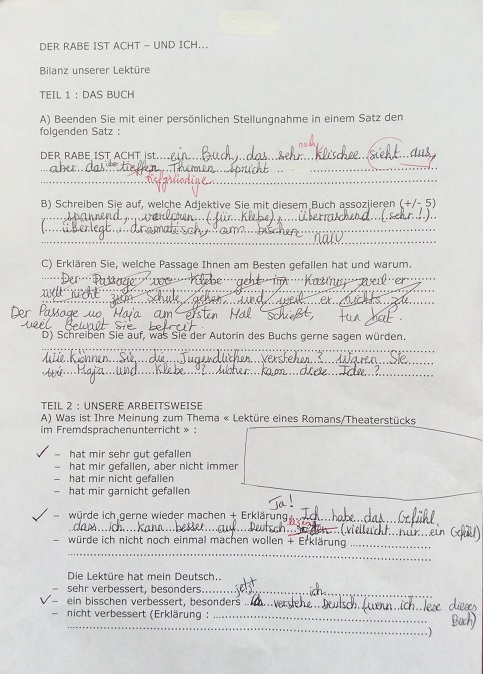 DER RABE IST ACHT – UND ICH...
Bilanz unserer Lektüre
TEIL 1 : DAS BUCH
A) Beenden Sie mit einer persönlichen Stellungnahme in einem Satz den
folgenden Satz :
nach
DER RABE IST ACHT ist ein Buch, das sehr Klischee sieht aus,
aber das über tieffen Themen spricht
tiefgründige
B) Schreiben Sie auf, welche Adjektive Sie mit diesem Buch assoziieren (+/- 5)
spannend, verloren (für Klebe), überraschend (sehr!)
( überlegt, dramatisch, am bischen
naiv
C) Erklären Sie, welche Passage Ihnen am Besten gefallen hat und warum.
Der Passage wo Klebe geht im Kasino, weil er
will nicht zum Schule gehen und weil er nichts zu
Der Passage wo Maja am ersten Mal schießt, tun hat
weil Gewalt Sie befreit.
D) Schreiben Sie auf, was Sie der Autorin des Buchs gerne sagen würden.
Wie können Sie die Jugendlichen verstehen? Waren Sie
wie Maja und Klebe? Woher kam diese Idee?
TEIL 2 : UNSERE ARBEITSWEISE
A) Was ist Ihre Meinung zum Thema « Lektüre eines Romans/Theaterstücks
im Fremdsprachenunterricht » :
– hat mir sehr gut gefallen
– hat mir gefallen, aber nicht immer
– hat mir nicht gefallen
– hat mir garnicht gefallen
Ja!
– würde ich gerne wieder machen + Erklärung Ich habe das Gefühl
dass ich kann besser auf Deutsch (vielleicht nur ein Gefühl)
– würde ich nicht noch einmal machen wollen + Erklärung
Die Lektüre hat mein Deutsch..
– sehr verbessert, besonders jetzt ich
– ein bisschen verbessert, besonders verstehe Deutsch (wenn ich lese dieses
– nicht verbessert (Erklärung : Buch)
)